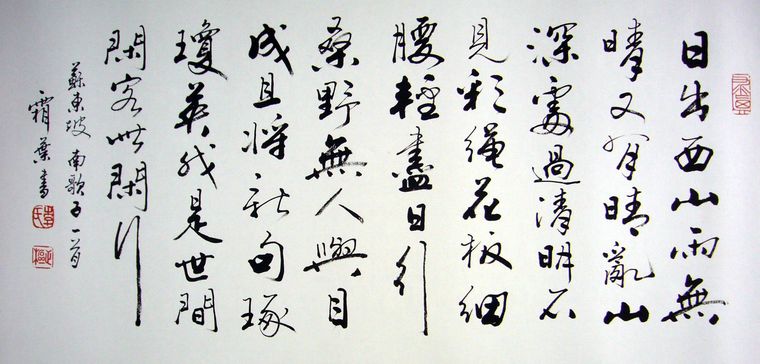 日出西山雨無
晴又有晴亂山
深處過清明不
見彩繩花板細
腰輕盡日行
桑野無人與目
成且將新句琢
瓊英我是世間
閑客此閑行
蘇東坡 南歌子一首
霜葉書